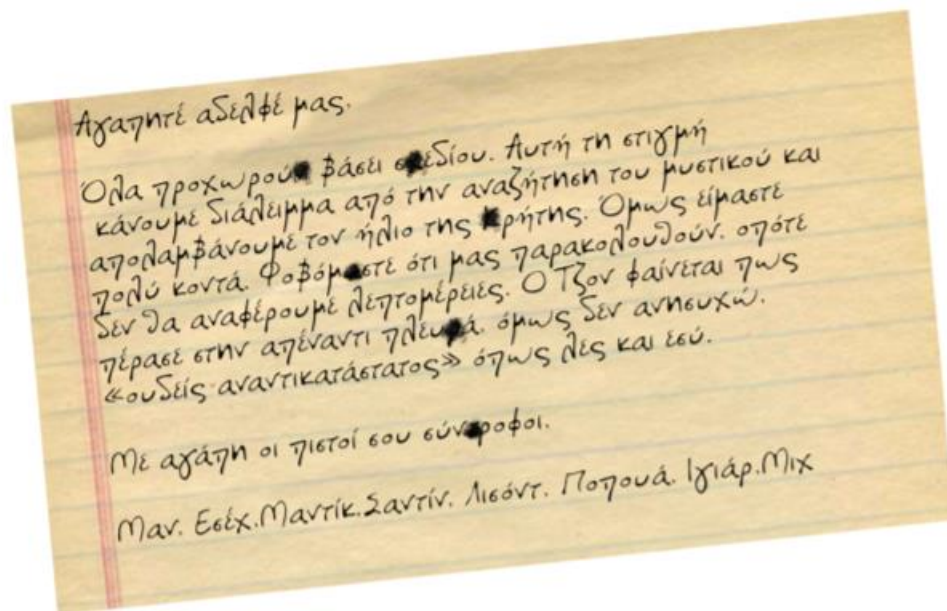 Αγαπητέ αδελφέ μας.
Όλα προχωρούν βάσει σχεδίου. Αυτή τη στιγμή
κάνουμε διάλειμμα από την αναζήτηση του μυστικού και
απολαμβάνουμε τον ήλιο της Κρήτης. Όμως είμαστε
πολύ κοντά. Φοβόμαστε ότι μας παρακολουθούν. οπότε
δεν θα αναφέρουμε λεπτομέρειες. Ο Τζον φαίνεται πως
πέρασε στην απέναντι πλευρά. όμως δεν ανησυχώ.
«ουδείς αναντικατάστατος» όπως λες και εσύ.
Με αγάπη οι πιστοί σου σύντροφοι.
Μαν. Εσέχ.Μαντίκ.Σαντίν. Λισόντ. Ποπουά. Ιγιάρ.Μιχ